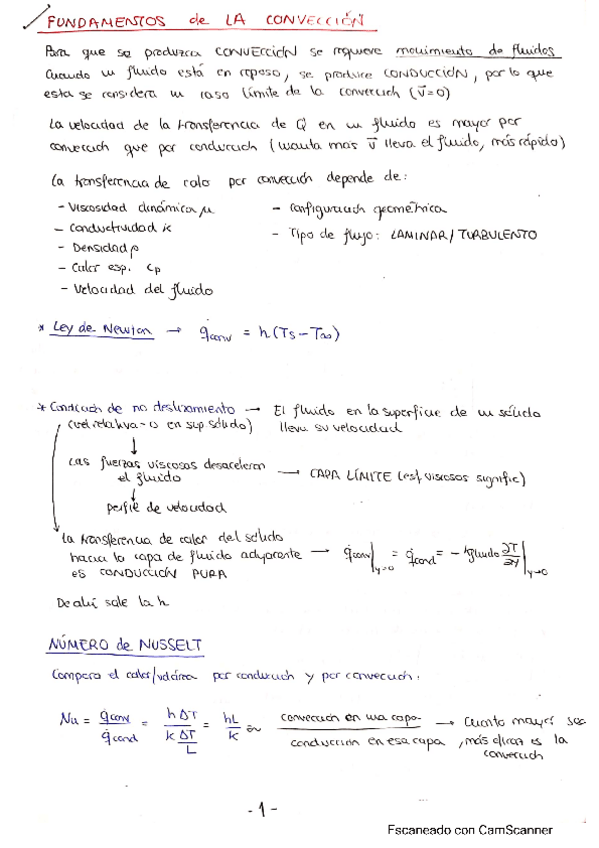 FUNDAMENTOS de LA CONVECCIÓN
Para que se produzca CONVECCIÓN se requiere movimiento de fluidos
Cuando un fluido está en reposo, se produce CONDUCCIÓN, por lo que
esta se considera un caso límite de la convección (v⃗=0)
La velocidad de la transferencia de Q̇ en un fluido es mayor por
convección que por conducción (cuanta más v⃗ lleva el fluido, más rápido)
La transferencia de calor por convección depende de:
- Viscosidad dinámica μ
- Conductividad k
- Densidad ρ
- Calor esp. Cp
- Velocidad del fluido
- Configuración geométrica
- Tipo de flujo: LAMINAR/TURBULENTO
* Ley de Newton → q̇conv = h(Ts-T∞)
* Condición de no deslizamiento → El fluido en la superficie de un sólido
(vel relativa=0 en sup sólido) lleva su velocidad
Las fuerzas viscosas desaceleran → CAPA LÍMITE (esf viscosos signific)
el fluido
perfil de velocidad
la transferencia de calor del sólido
hacia la capa de fluido adyacente → q̇conv|y=0 = q̇cond = -kfluido ∂T/∂y|y=0
es CONDUCCIÓN PURA
De ahí sale la h
NÚMERO de NUSSELT
Compara el calor por conducción y por convección:
Nu = q̇conv/q̇cond = hΔT/(k ΔT/L) = hL/k ≈ convección en una capa/conducción en esa capa → Cuanto mayor sea
, más eficaz es la
convección
-1-
Escaneado con CamScanner